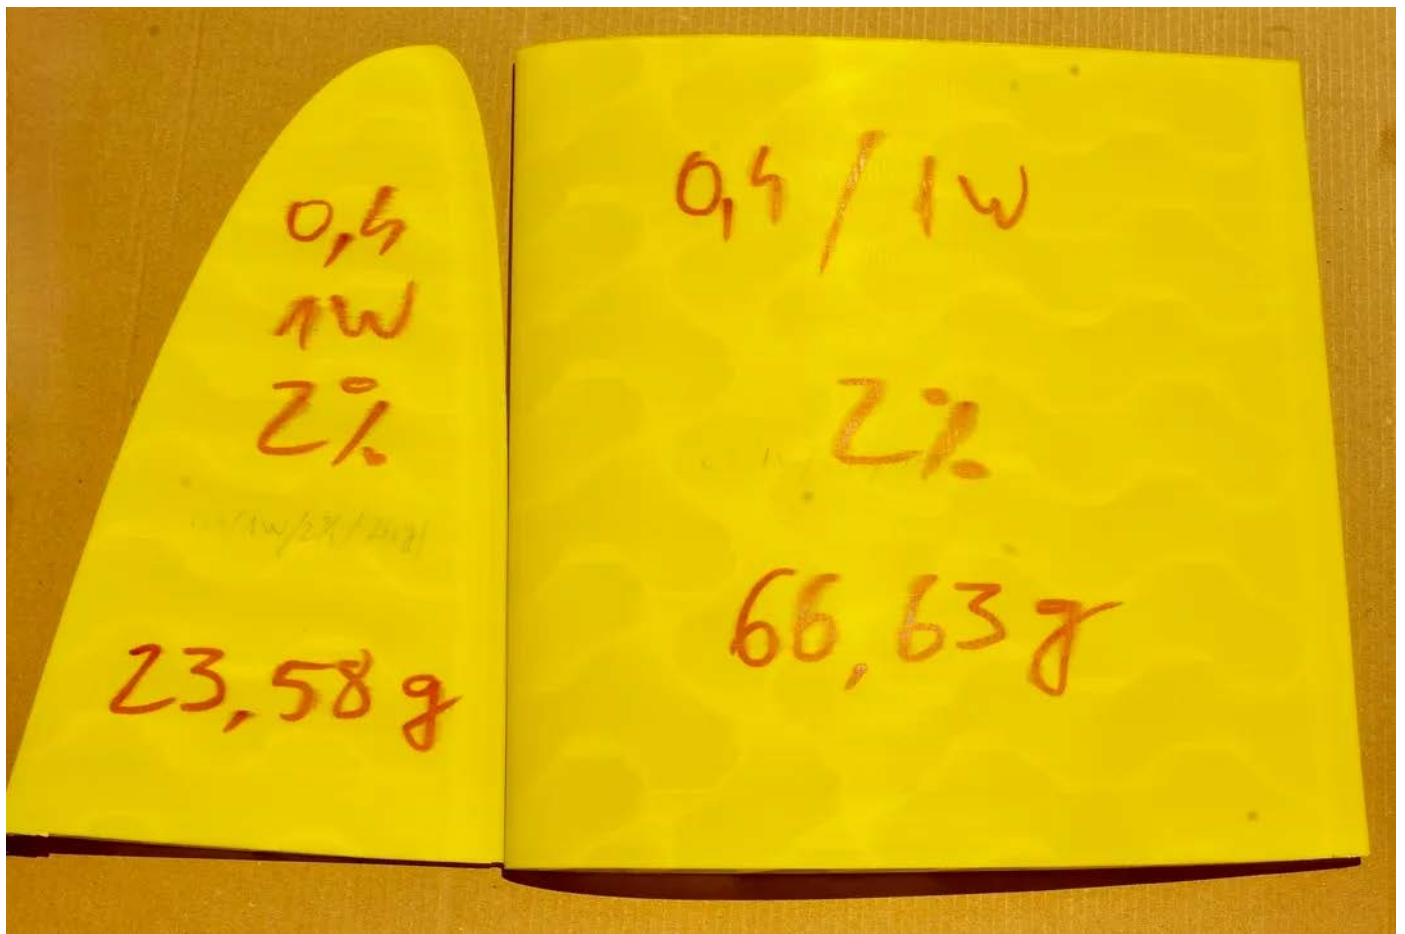 0,4
1W
2%
23,58 g
0,4 / 1W
2%
66,63 g